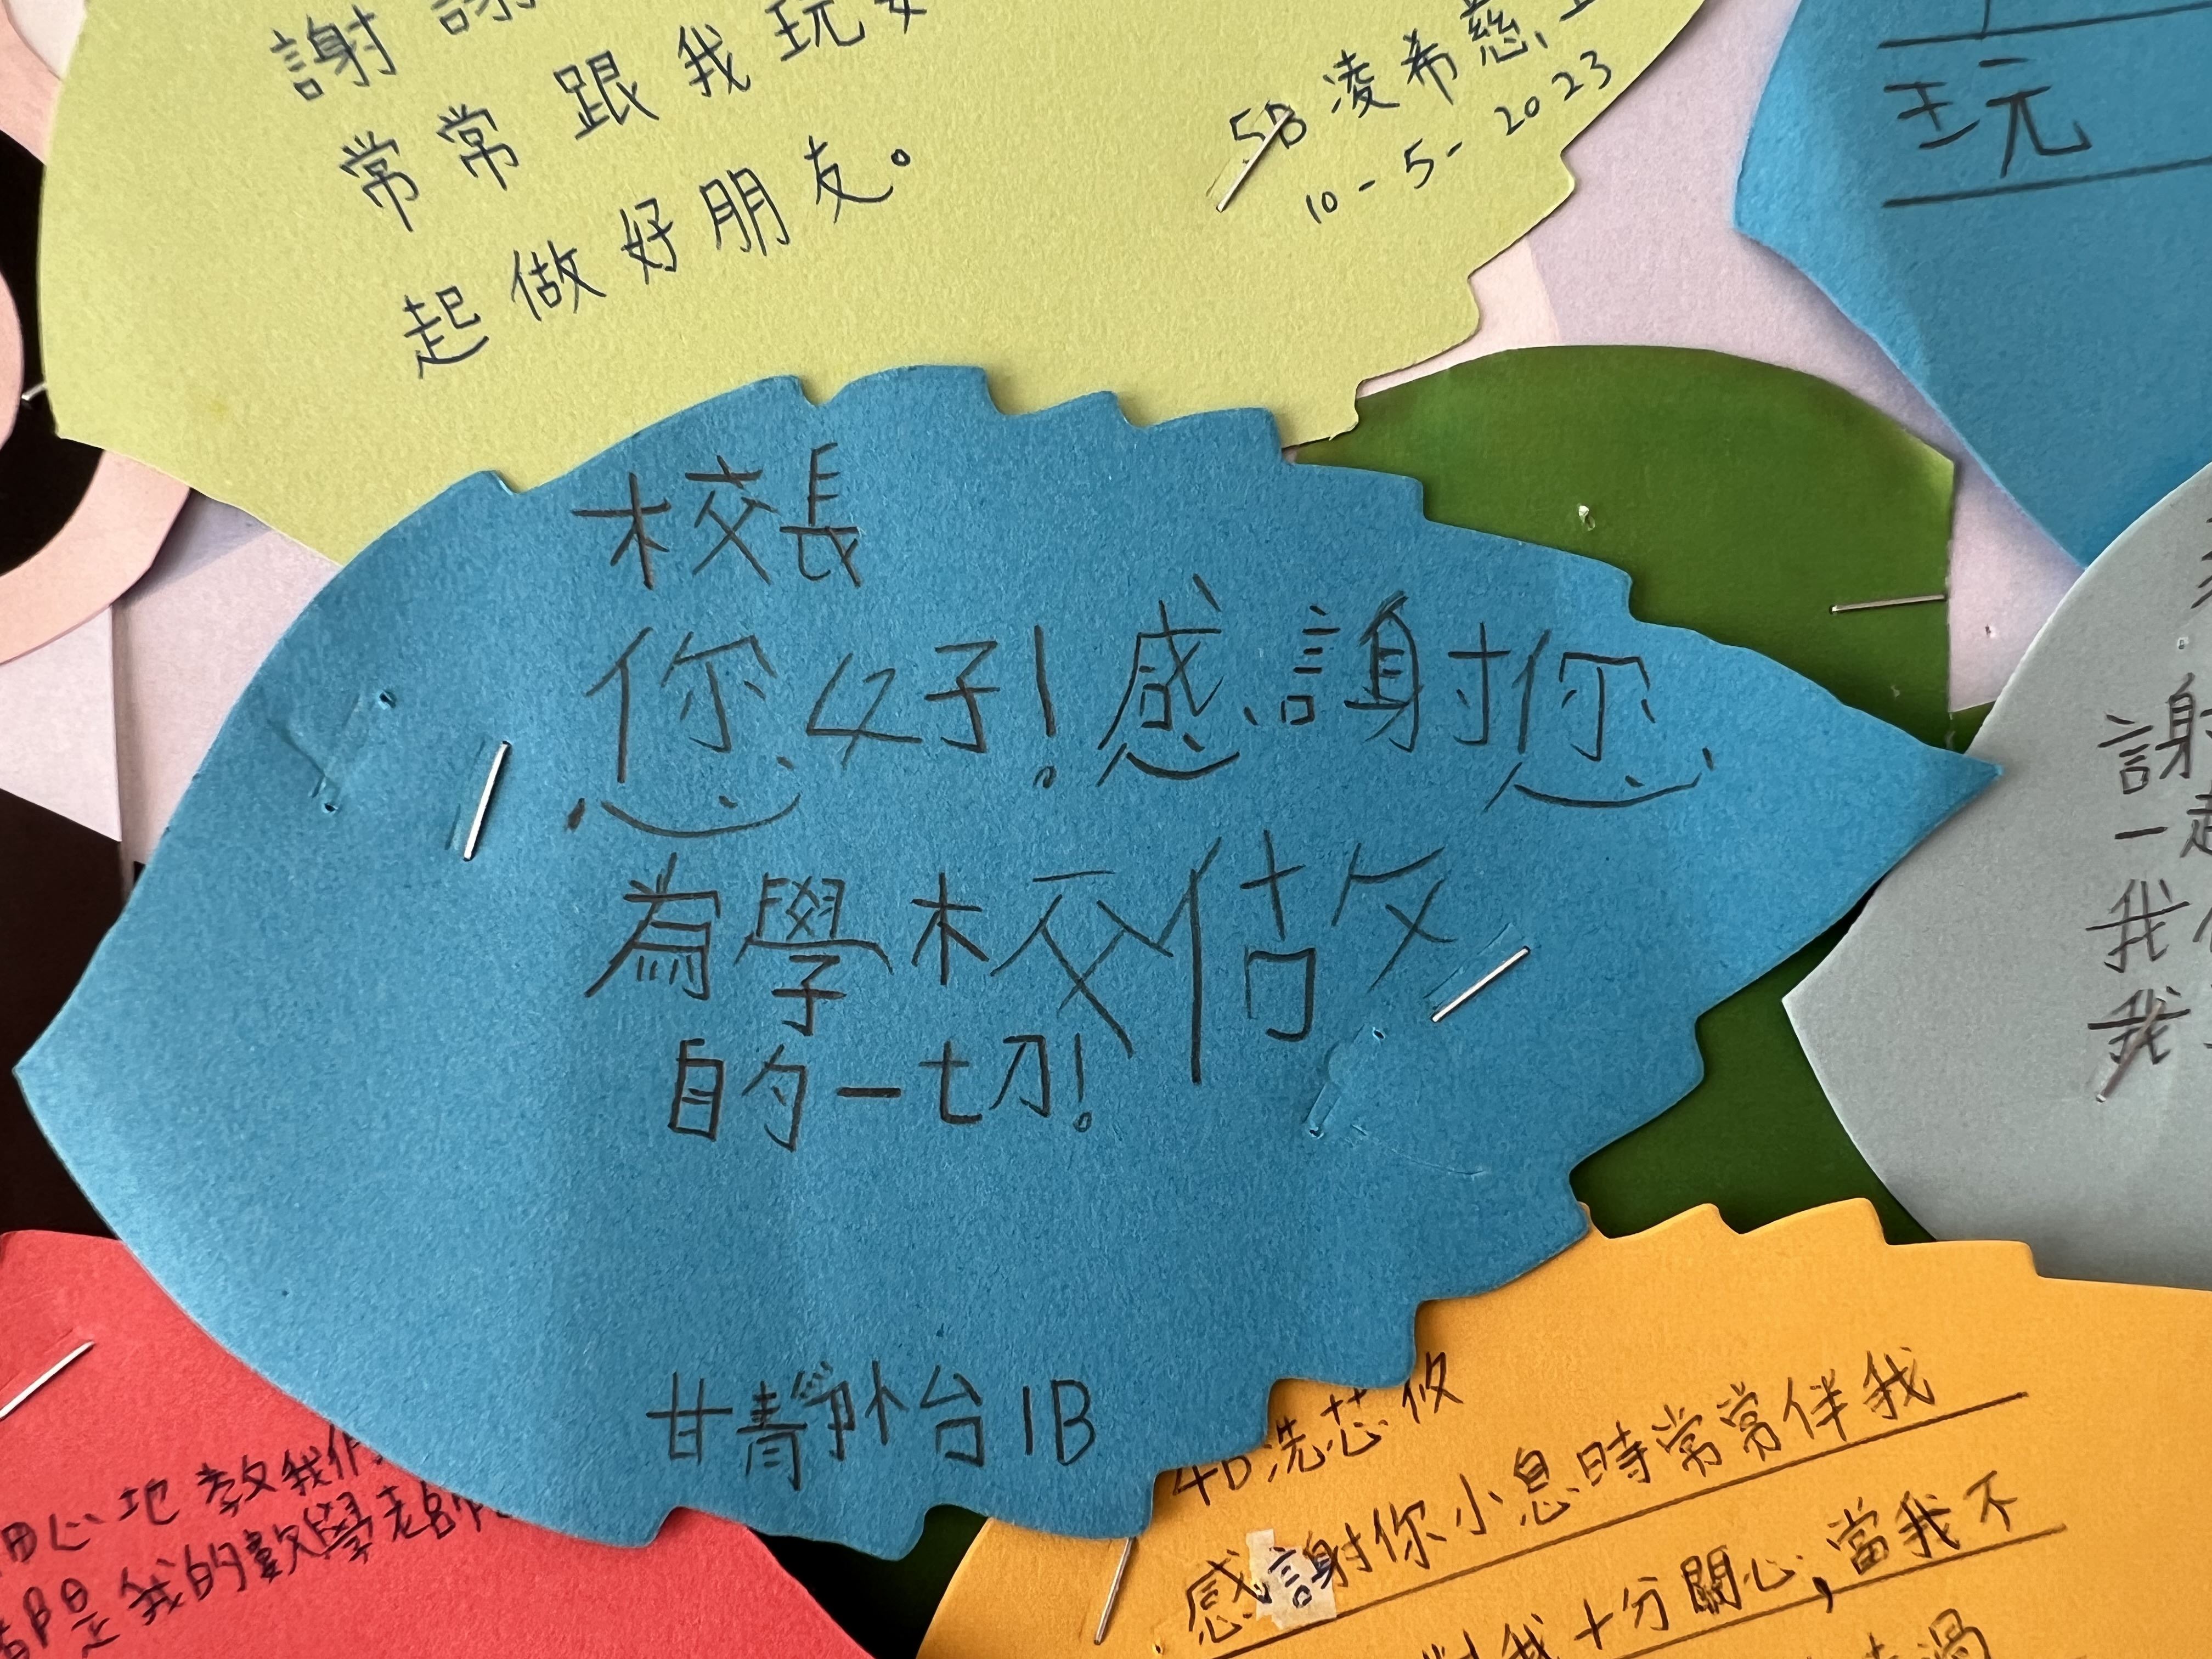 謝
常常跟我玩
起做好朋友。
5B 凌希慈
10-5-2023
玩
校長
您好!感謝您
為學校做
的一切!
甘靜怡 1B
謝
一起
我
我
用心地教我們
都是我的數學老師
4D 冼芯攸
感謝你小息時常常伴我
對我十分關心,當我不
過